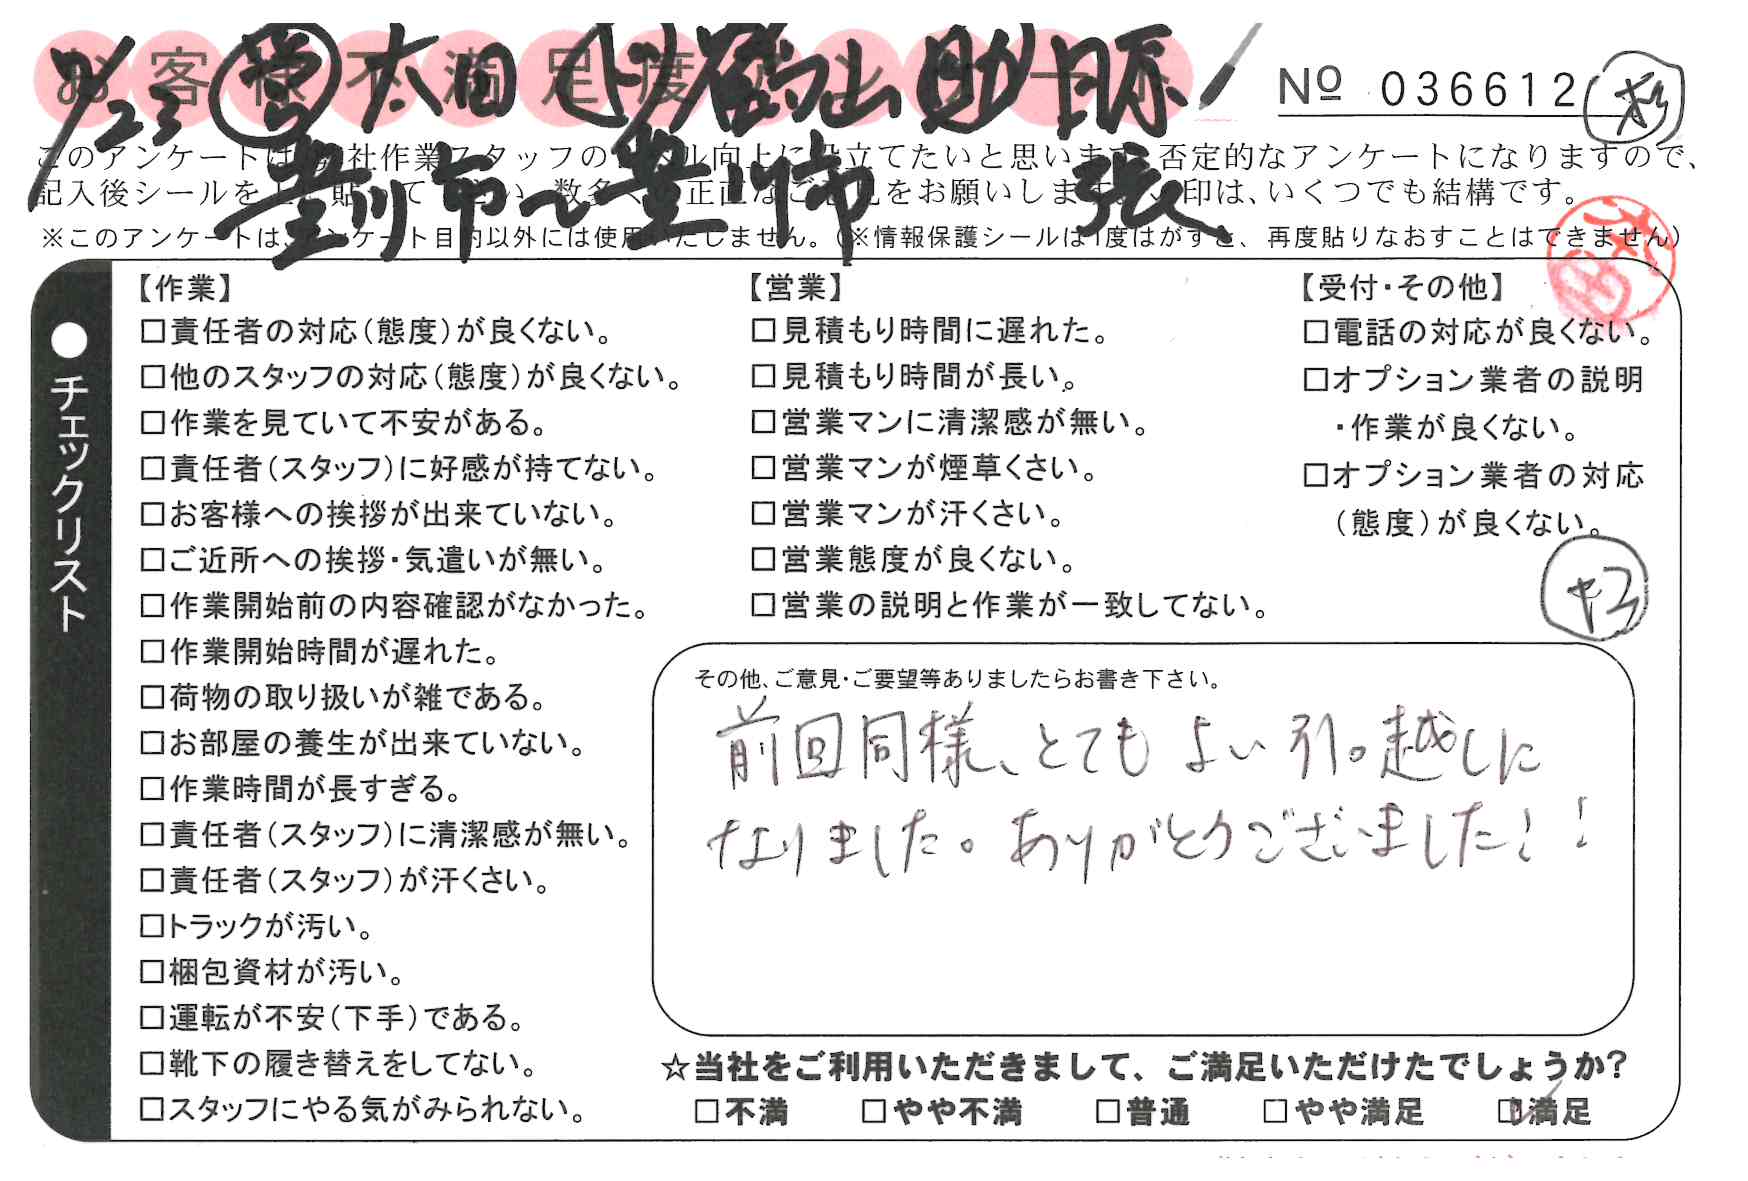 お客様不満足度アンケート
7/23 営 太田 鶴山 助
豊川市〜豊川市 張
No 036612
このアンケートは、当社作業スタッフのレベル向上に役立てたいと思います。否定的なアンケートになりますので、
記入後シールを上に貼って下さい。数多くの正直なご意見をお願いします。レ印は、いくつでも結構です。
※このアンケートは、アンケート目的以外には使用いたしません。(※情報保護シールは1度はがすと、再度貼りなおすことはできません)
●チェックリスト
【作業】
□責任者の対応(態度)が良くない。
□他のスタッフの対応(態度)が良くない。
□作業を見ていて不安がある。
□責任者(スタッフ)に好感が持てない。
□お客様への挨拶が出来ていない。
□ご近所への挨拶・気遣いが無い。
□作業開始前の内容確認がなかった。
□作業開始時間が遅れた。
□荷物の取り扱いが雑である。
□お部屋の養生が出来ていない。
□作業時間が長すぎる。
□責任者(スタッフ)に清潔感が無い。
□責任者(スタッフ)が汗くさい。
□トラックが汚い。
□梱包資材が汚い。
□運転が不安(下手)である。
□靴下の履き替えをしてない。
□スタッフにやる気がみられない。
【営業】
□見積もり時間に遅れた。
□見積もり時間が長い。
□営業マンに清潔感が無い。
□営業マンが煙草くさい。
□営業マンが汗くさい。
□営業態度が良くない。
□営業の説明と作業が一致してない。
【受付・その他】
□電話の対応が良くない。
□オプション業者の説明
・作業が良くない。
□オプション業者の対応
(態度)が良くない。
その他、ご意見・ご要望等ありましたらお書き下さい。
前回同様、とてもよい引っ越しに
なりました。ありがとうございました!!
☆当社をご利用いただきまして、ご満足いただけたでしょうか?
□不満 □やや不満 □普通 □やや満足 ☑満足